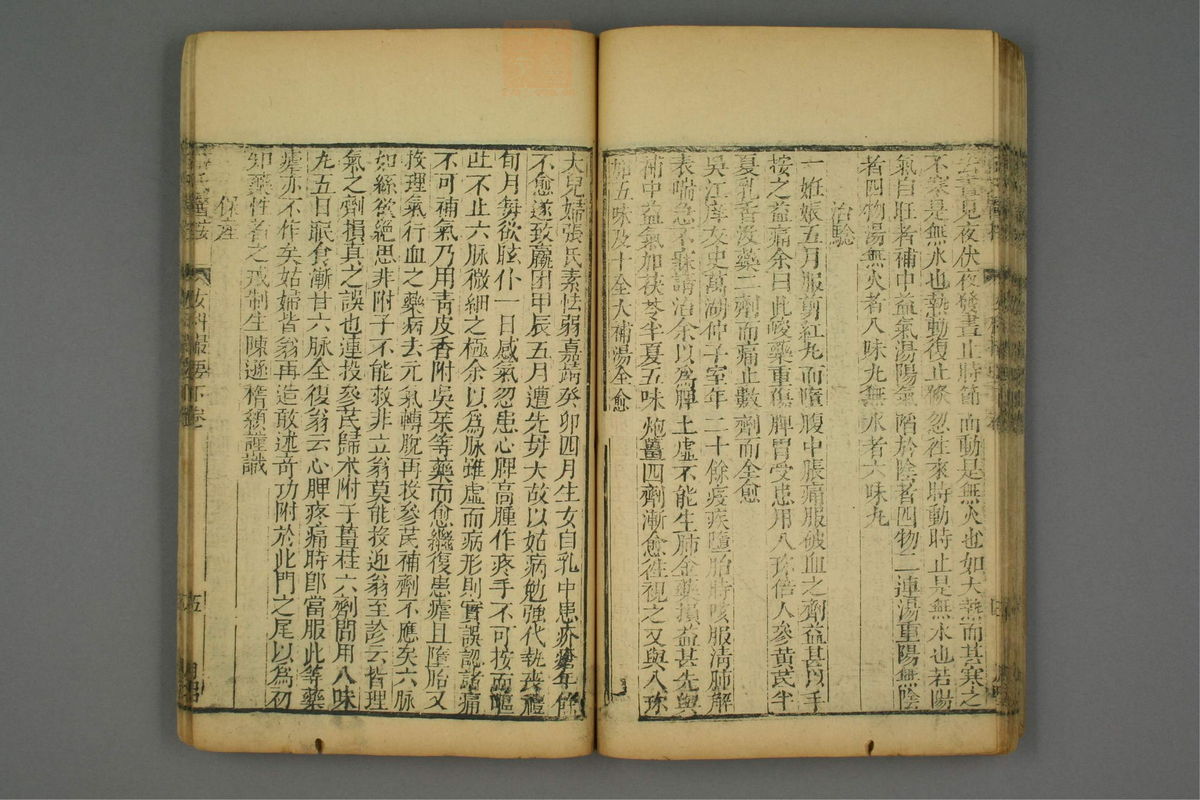 晝見夜伏夜發晝止時節而動是無火也如大熱而甚寒之
不寒是無水也熱動復止倏忽往來時動時止是無水也若陽
氣自旺者補中益氣湯陽氣陷於陰者四物二連湯重陽無陰
者四物湯無火者八味丸無水者六味丸
治驗
一姙娠五月服剪紅丸而墮腹中脹痛服破血之劑益甚以手
按之益痛余曰此峻藥重傷脾胃受患用八珍倍人參黃芪半
夏乳香沒藥二劑而痛止數劑而全愈
吳江庠友史萬湖仲子室年二十餘疫疾墮胎時咳服清肺解
表喘急不寐請治余以為脾土虛不能生肺金藥損益甚先與
補中益氣加茯苓半夏五味炮薑四劑漸愈徃視之又與八珍
加五味及十全大補湯全愈
大兒婦張氏素怯弱嘉靖癸卯四月生女自乳中患疥瘡年餘
不愈遂致羸困甲辰五月遭先母大故以姑病勉強代執喪禮
旬月每欲眩仆一日感氣忽患心脾高腫作疼手不可按而嘔
吐不止六脉微細之極余以為脉雖虛而病形則實誤認諸痛
不可補氣乃用青皮香附吳茱等藥而愈繼復患瘧且墮胎又
投理氣行血之藥病去元氣轉脫再投參芪補劑不應矣六脉
如絲欲絕思非附子不能救非立翁莫能投迎翁至診云皆理
氣之劑損真之誤也連投參芪歸术附子薑桂六劑間用八味
丸五日眠食漸甘六脉全復翁云心脾疼痛時即當服此等藥
瘧亦不作矣姑婦皆翁再造敢述奇功附於此門之尾以為初
知藥性者之戒制生陳遜稽顙謹識
保產
薛氏醫按
女科撮要下卷
五